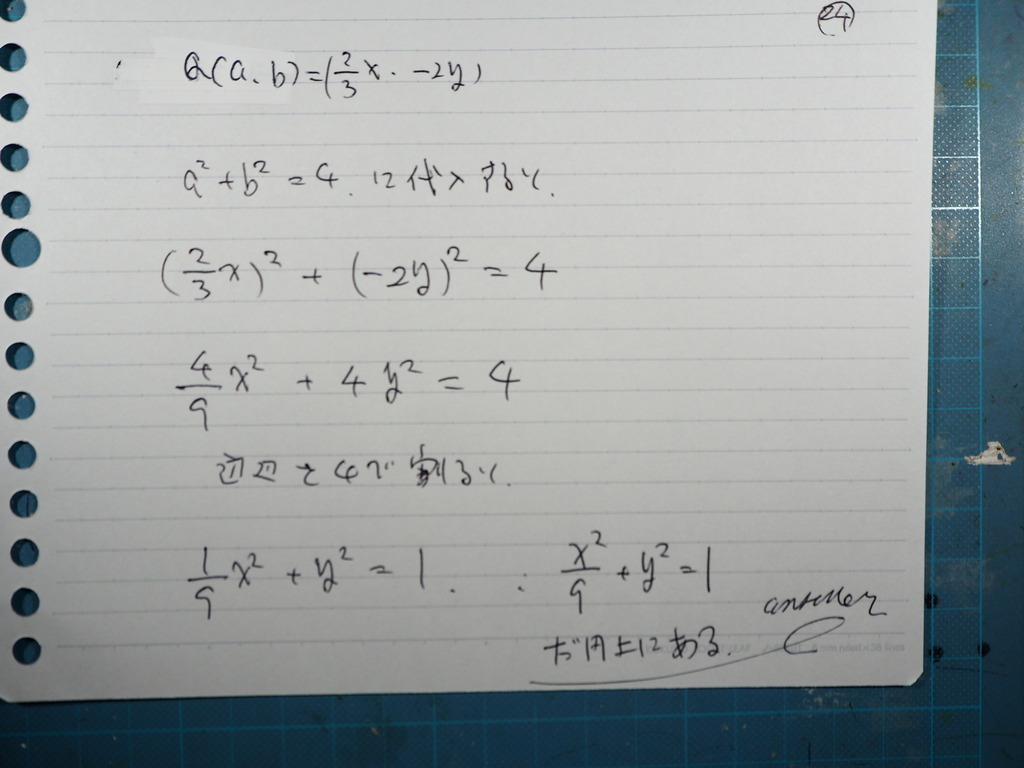 24
Q(a, b) = (2/3 x, -2y)
a² + b² = 4. に代入すると.
(2/3 x)² + (-2y)² = 4
4/9 x² + 4y² = 4
辺辺を4で割ると.
1/9 x² + y² = 1. ∴ x²/9 + y² = 1
answer
だ円上にある.